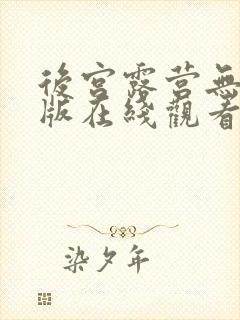 後宮露营無
版在綫觀看
染夕年